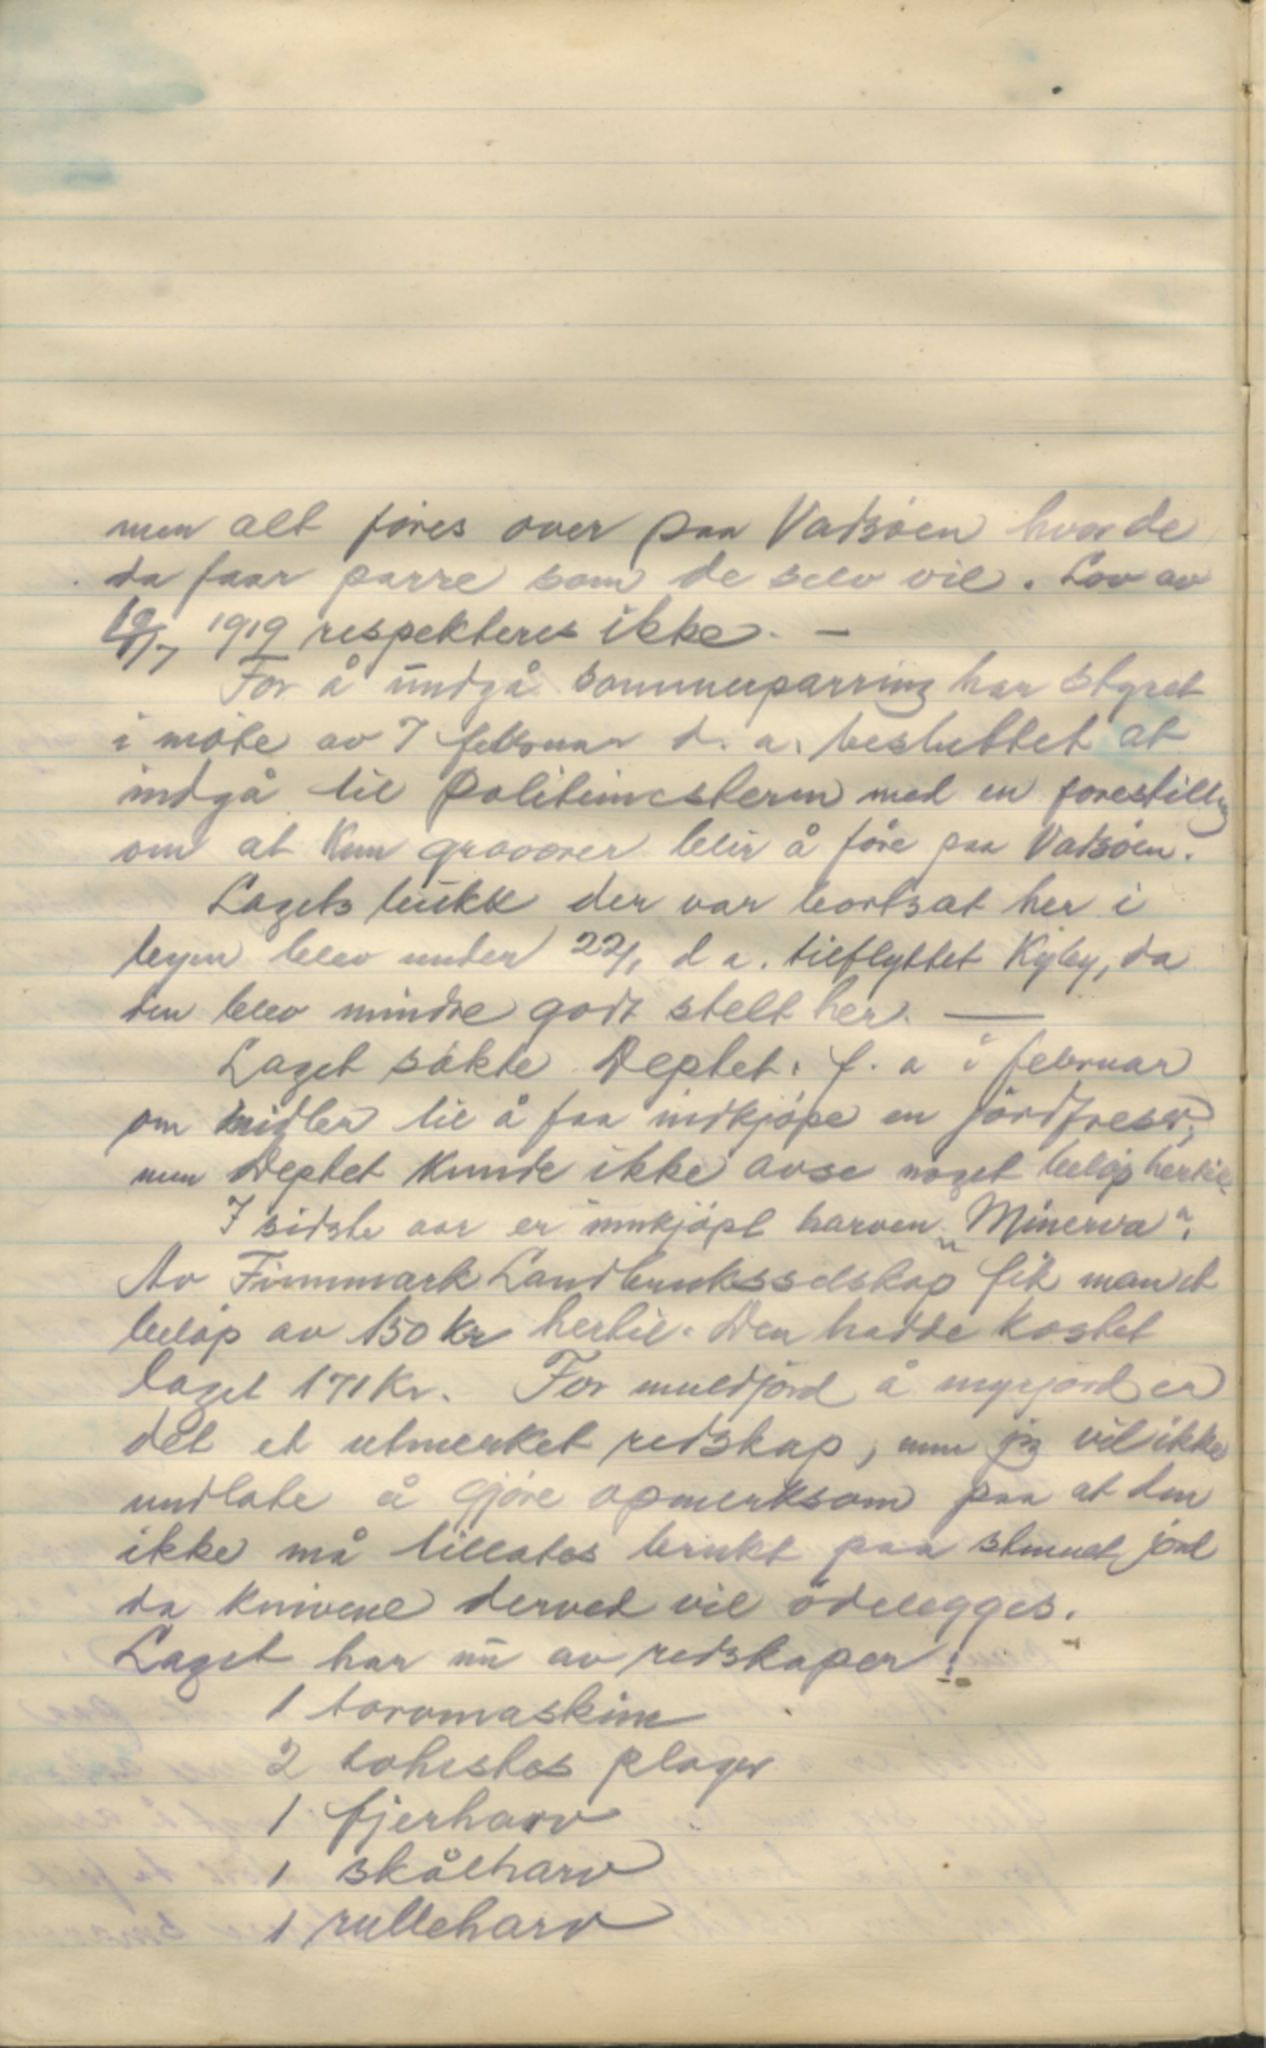 men alt föres over paa Vadsöen hvor de
da faar parre som de selv vil. Lov av
/7 1919 respekteres ikke. —
For å undgå sommerparring har styret
i möte av 7 februar d. a. besluttet at
indgå til Politimesteren med en forestilling
om at kun gravorer blir å före paa Vadsöen.
Lagets bukk der var bortsat her i
byen blev under 22/1 d a. tilflyttet Kyby, da
den blev mindre godt stelt her. —
Laget sökte Deptet. f. a i februar
om midler til å faa indkjöpe en jordfreser,
men Deptet kunde ikke avse noget belöp hertil.
I sidste aar er innkjöpt harven „Minerva".
Av Finnmark Landbruksselskap fik man et
belöp av 150 kr hertil. Den hadde kostet
laget 171 kr. For muldjord å myrjord er
det et utmerket redskap, men jeg vil ikke
undlate å gjöre opmerksom paa at den
ikke må tillates brukt paa stenet jord
da knivene derved vil ödelegges.
Laget har nu av redskaper:
1 torvmaskine
2 tohestes ploger
1 fjerharv
1 skålharv
1 rulleharv